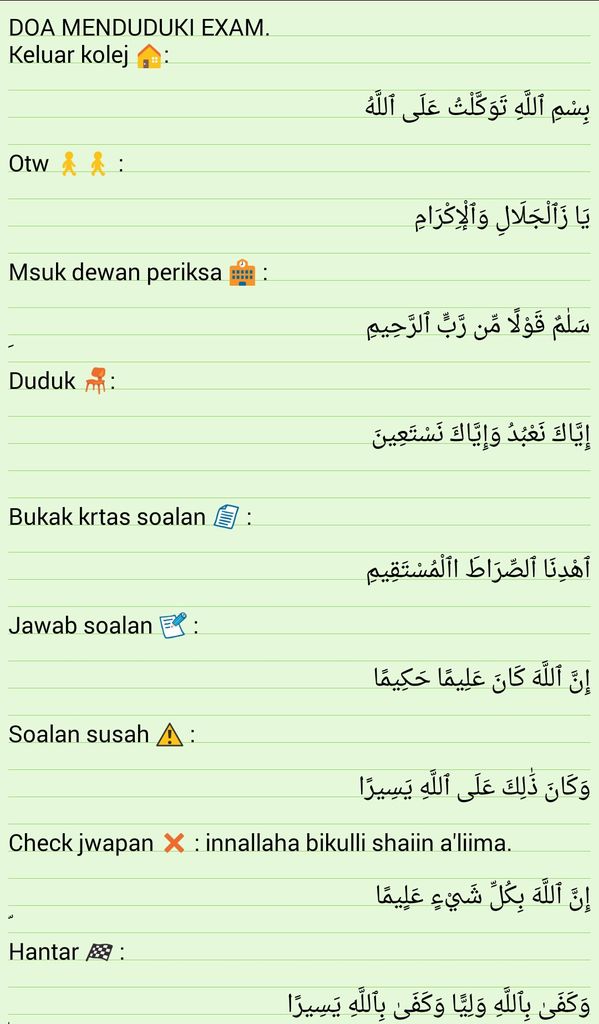 DOA MENDUDUKI EXAM.
Keluar kolej 🏠:
بِسْمِ ٱللَّهِ تَوَكَّلْتُ عَلَى ٱللَّهُ
Otw 🚶🚶 :
يَا زَٱلْجَلَالِ وَٱلْإِكْرَامِ
Msuk dewan periksa 🏫 :
سَلَٰمٌ قَوْلًا مِّن رَّبٍّ ٱلرَّحِيمِ
Duduk 🪑:
إِيَّاكَ نَعْبُدُ وَإِيَّاكَ نَسْتَعِينَ
Bukak krtas soalan 📄 :
ٱهْدِنَا ٱلصِّرَاطَ اٱلْمُسْتَقِيمِ
Jawab soalan 📝 :
إِنَّ ٱللَّهَ كَانَ عَلِيمًا حَكِيمًا
Soalan susah ⚠️ :
وَكَانَ ذَٰلِكَ عَلَى ٱللَّهِ يَسِيرًا
Check jwapan ❌ : innallaha bikulli shaiin a'liima.
إِنَّ ٱللَّهَ بِكُلِّ شَيْءٍ عَلِيمًا
Hantar 🏁 :
وَكَفَىٰ بِٱللَّهِ وَلِيًّا وَكَفَىٰ بِٱللَّهِ يَسِيرًا